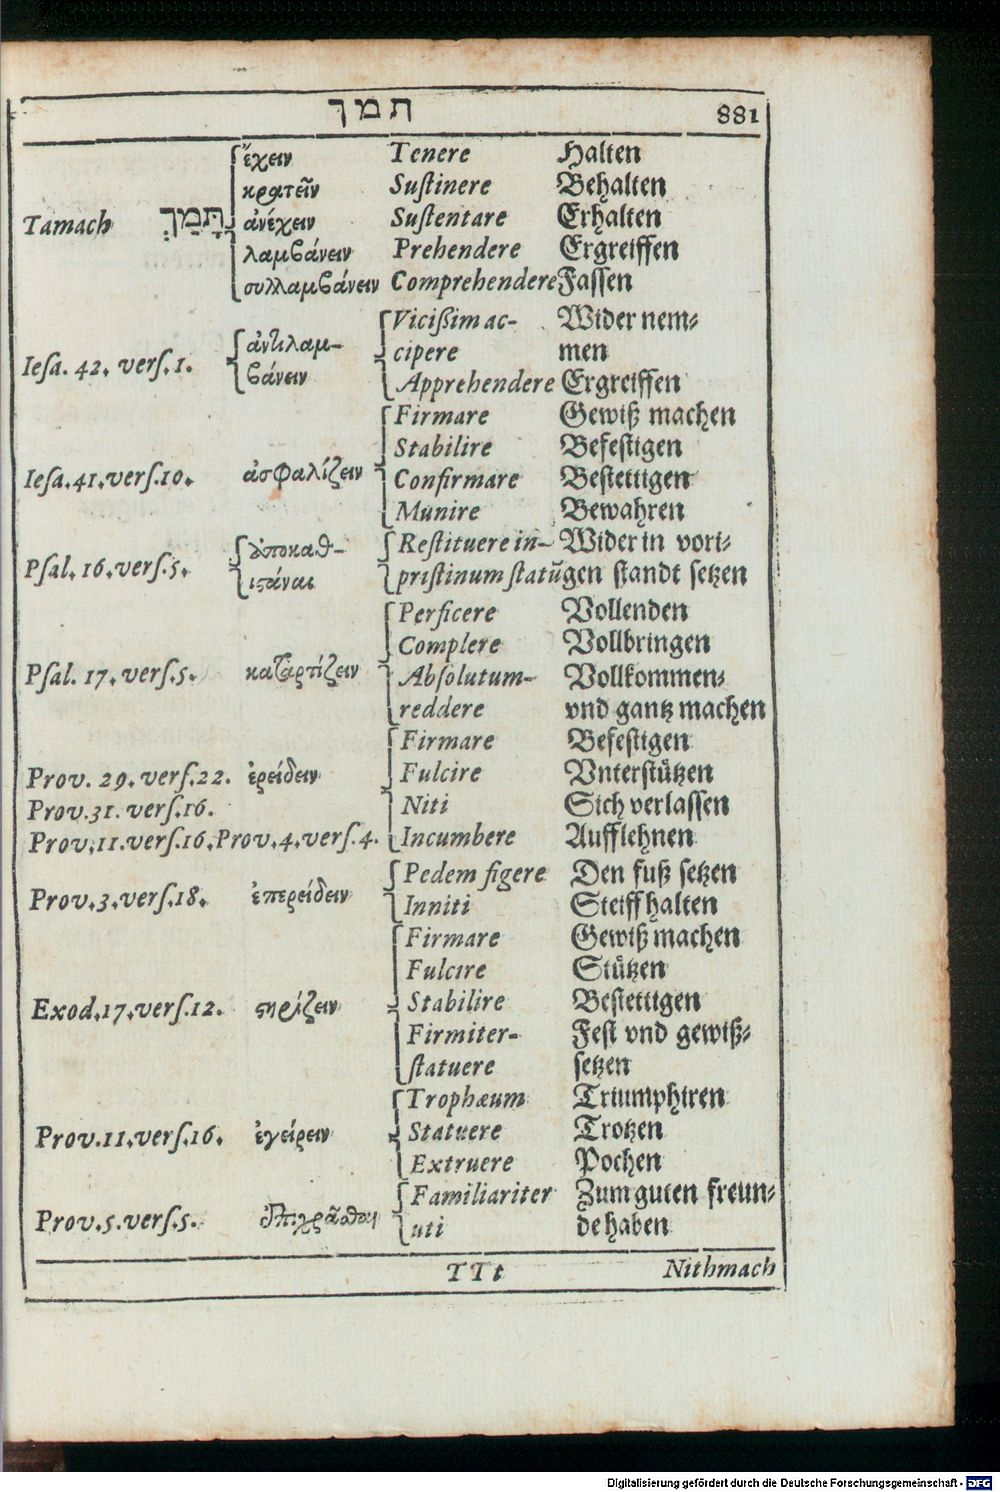 תמך 881
ἔχειν Tenere Halten
κρατεῖν Suſtinere Behalten
Tamach תָּמַךְ ἀνέχειν Suſtentare Erhalten
λαμβάνειν Prehendere Ergreiffen
συλλαμβάνειν Comprehendere Faſſen
Viciſſim ac- Wider nem⸗
Ieſa. 42. verſ. 1. ἀντιλαμ- cipere men
βάνειν Apprehendere Ergreiffen
Firmare Gewiß machen
Stabilire Befeſtigen
Ieſa. 41. verſ. 10. ἀσφαλίζειν Confirmare Beſtettigen
Munire Bewahren
ἀποκαθ- Reſtituere in- Wider in vori⸗
Pſal. 16. verſ. 5. ιϛάναι priſtinum ſtatũ gen ſtandt ſetzen
Perficere Vollenden
Complere Vollbringen
Pſal. 17. verſ. 5. καταρτίζειν Abſolutum- Vollkommen⸗
reddere vnd gantz machen
Firmare Befeſtigen
Prov. 29. verſ. 22. ἐρείδειν Fulcire Vnterſtützen
Prov. 31. verſ. 16. Niti Sich verlaſſen
Prov. 11. verſ. 16. Prov. 4. verſ. 4. Incumbere Aufflehnen
Pedem figere Den fuß ſetzen
Prov. 3. verſ. 18. ἐπερείδειν Inniti Steiff halten
Firmare Gewiß machen
Fulcire Stützen
Exod. 17. verſ. 12. ϛηρίζειν Stabilire Beſtettigen
Firmiter- Feſt vnd gewiß⸗
ſtatuere ſetzen
Trophæum Triumphiren
Prov. 11. verſ. 16. ἐγείρειν Statuere Trotzen
Extruere Pochen
Familiariter Zum guten freun⸗
Prov. 5. verſ. 5. ἐπιχρᾶσθαι uti de haben
TTt Nithmach
Digitalisierung gefördert durch die Deutsche Forschungsgemeinschaft - DFG